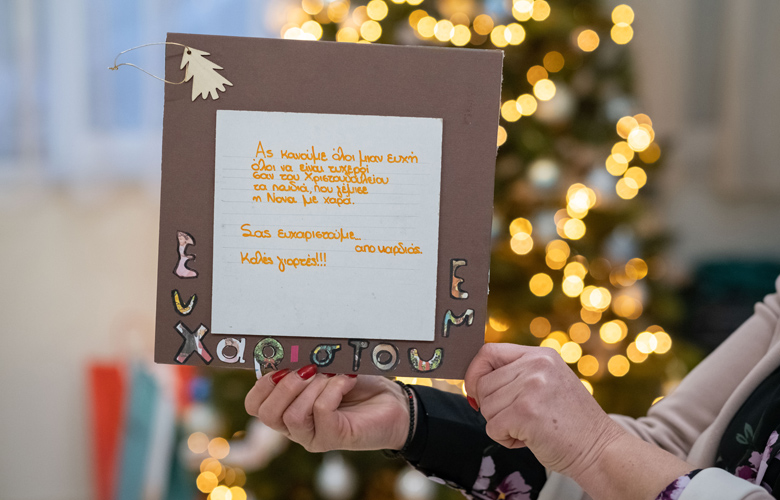 Ας κανουμε όλοι μιαν ευχή
όλοι να είναι τυχεροί
σαν του Χριστουδουλείου
τα παιδιά, που γέμισε
η Νονα με χαρά.
Σας ευχαριστούμε...
απο καρδιάς.
Καλές γιορτές!!!
Ευχαριστουμε